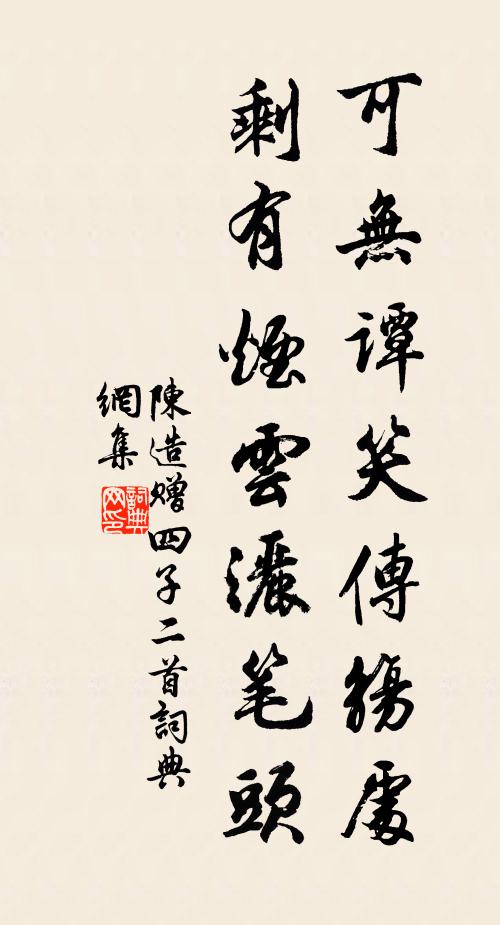 可無譚笑傳觴處
剩有煙雲灑笔頭
陳造贈四子二首詞典
網集
詞典
网印